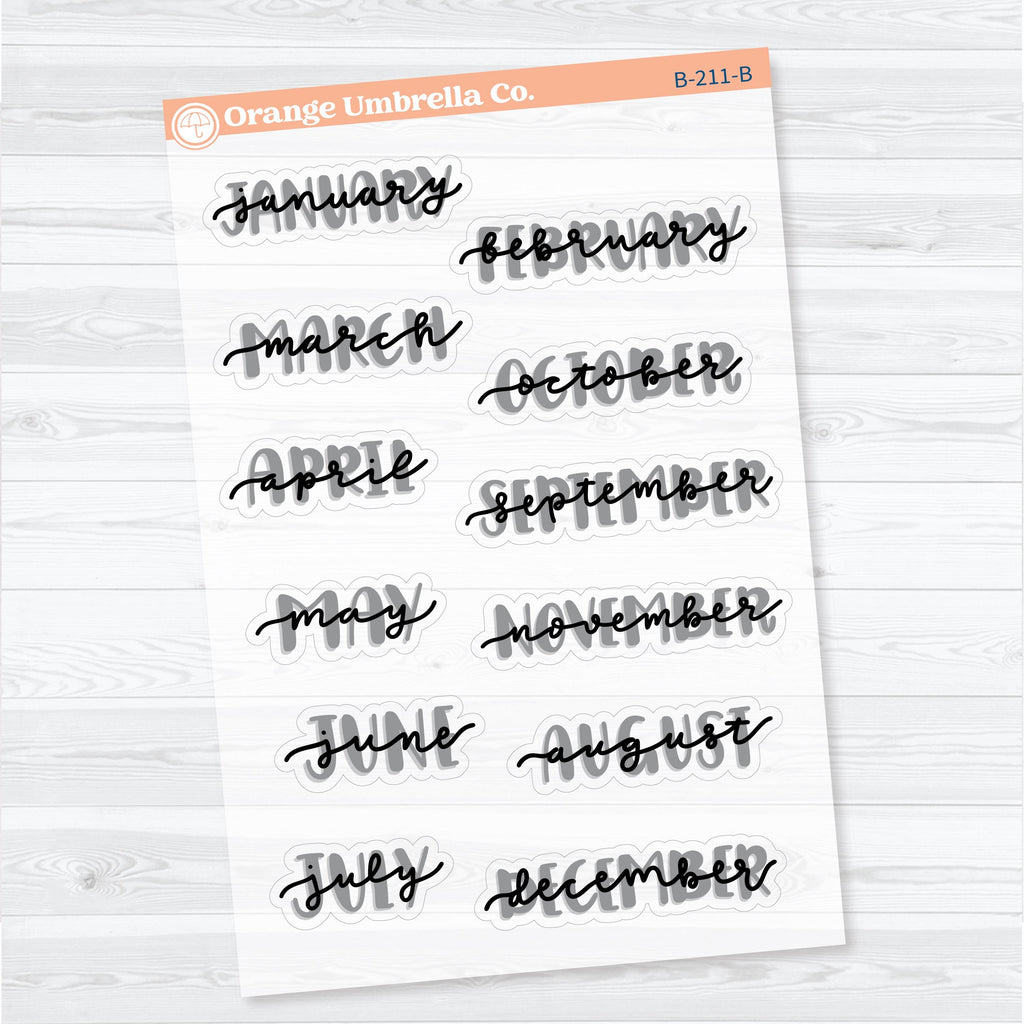 Orange Umbrella Co.
B-211-B
JANUARY
january
FEBRUARY
february
MARCH
march
OCTOBER
october
APRIL
april
SEPTEMBER
september
MAY
may
NOVEMBER
november
JUNE
june
AUGUST
august
JULY
july
DECEMBER
december